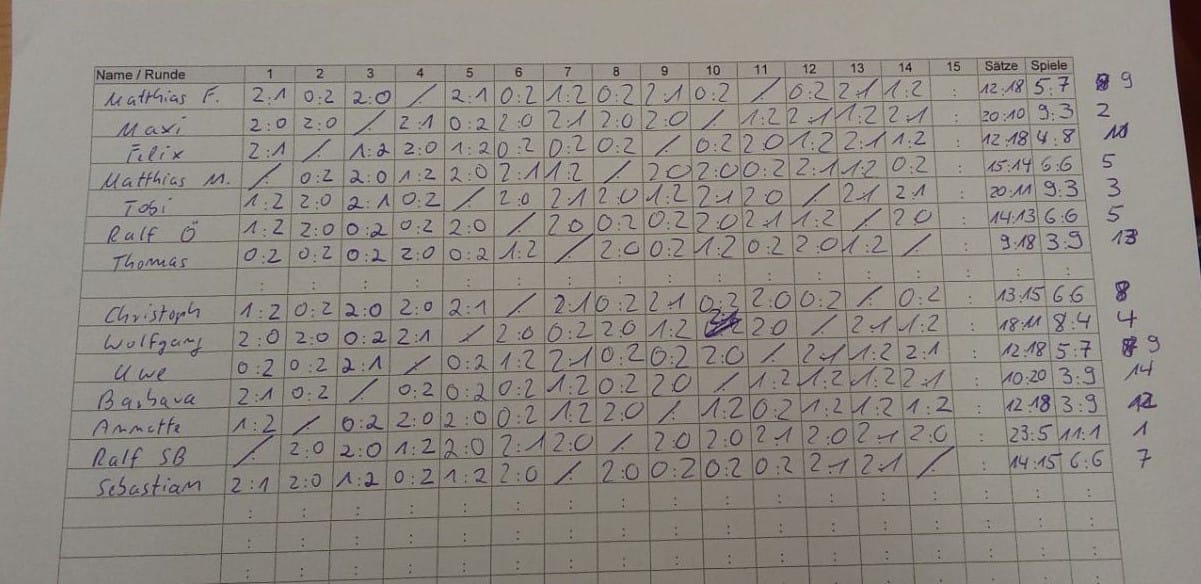 Name / Runde 1 2 3 4 5 6 7 8 9 10 11 12 13 14 15 Sätze Spiele
Matthias F. 2:1 0:2 2:0 ⁄. 2:1 0:2 1:2 0:2 2:1 0:2 ⁄. 0:2 2:1 1:2 : 12:18 5:7 9
Maxi 2:0 2:0 ⁄. 2:1 0:2 2:0 2:1 2:0 2:0 ⁄. 1:2 2:1 1:2 2:1 : 20:10 9:3 2
Felix 2:1 ⁄. 1:2 2:0 1:2 0:2 0:2 0:2 ⁄. 0:2 2:0 1:2 2:1 1:2 : 12:18 4:8 11
Matthias M. ⁄. 0:2 2:0 1:2 2:0 2:1 1:2 ⁄. 2:0 2:0 0:2 2:1 1:2 0:2 : 15:14 6:6 5
Tobi 1:2 2:0 2:1 0:2 ⁄. 2:0 2:1 2:0 1:2 2:1 2:0 ⁄. 2:1 2:1 : 20:11 9:3 3
Ralf Ö 1:2 2:0 0:2 0:2 2:0 ⁄. 2:0 0:2 0:2 2:0 2:1 1:2 ⁄. 2:0 : 14:13 6:6 5
Thomas 0:2 0:2 0:2 2:0 0:2 1:2 ⁄. 2:0 0:2 1:2 0:2 2:0 1:2 ⁄. : 9:18 3:9 13
: : : : : : : : : : : : : : : : :
Christoph 1:2 0:2 2:0 2:0 2:1 ⁄. 2:1 0:2 2:1 0:2 2:0 0:2 ⁄. 0:2 : 13:15 6:6 8
Wolfgang 2:0 2:0 0:2 2:1 ⁄. 2:0 0:2 2:0 1:2 2:0 ⁄. 2:1 1:2 : 18:11 8:4 4
Uwe 0:2 0:2 2:1 ⁄. 0:2 1:2 2:1 0:2 0:2 2:0 ⁄. 2:1 1:2 2:1 : 12:18 5:7 9
Barbara 2:1 0:2 ⁄. 0:2 0:2 0:2 1:2 0:2 2:0 ⁄. 1:2 1:2 1:2 2:1 : 10:20 3:9 14
Annette 1:2 ⁄. 0:2 2:0 2:0 0:2 1:2 2:0 ⁄. 1:2 0:2 1:2 1:2 1:2 : 12:18 3:9 12
Ralf SB ⁄. 2:0 2:0 1:2 2:0 2:1 2:0 ⁄. 2:0 2:0 2:1 2:0 2:1 2:0 : 23:5 11:1 1
Sebastian 2:1 2:0 1:2 0:2 1:2 2:0 ⁄. 2:0 0:2 0:2 0:2 2:1 2:1 ⁄. : 14:15 6:6 7
: : : : : : : : : : : : : : : : :
: : : : : : : : : : : : : : : : :
: : : : : : : : : : : : : : : : :